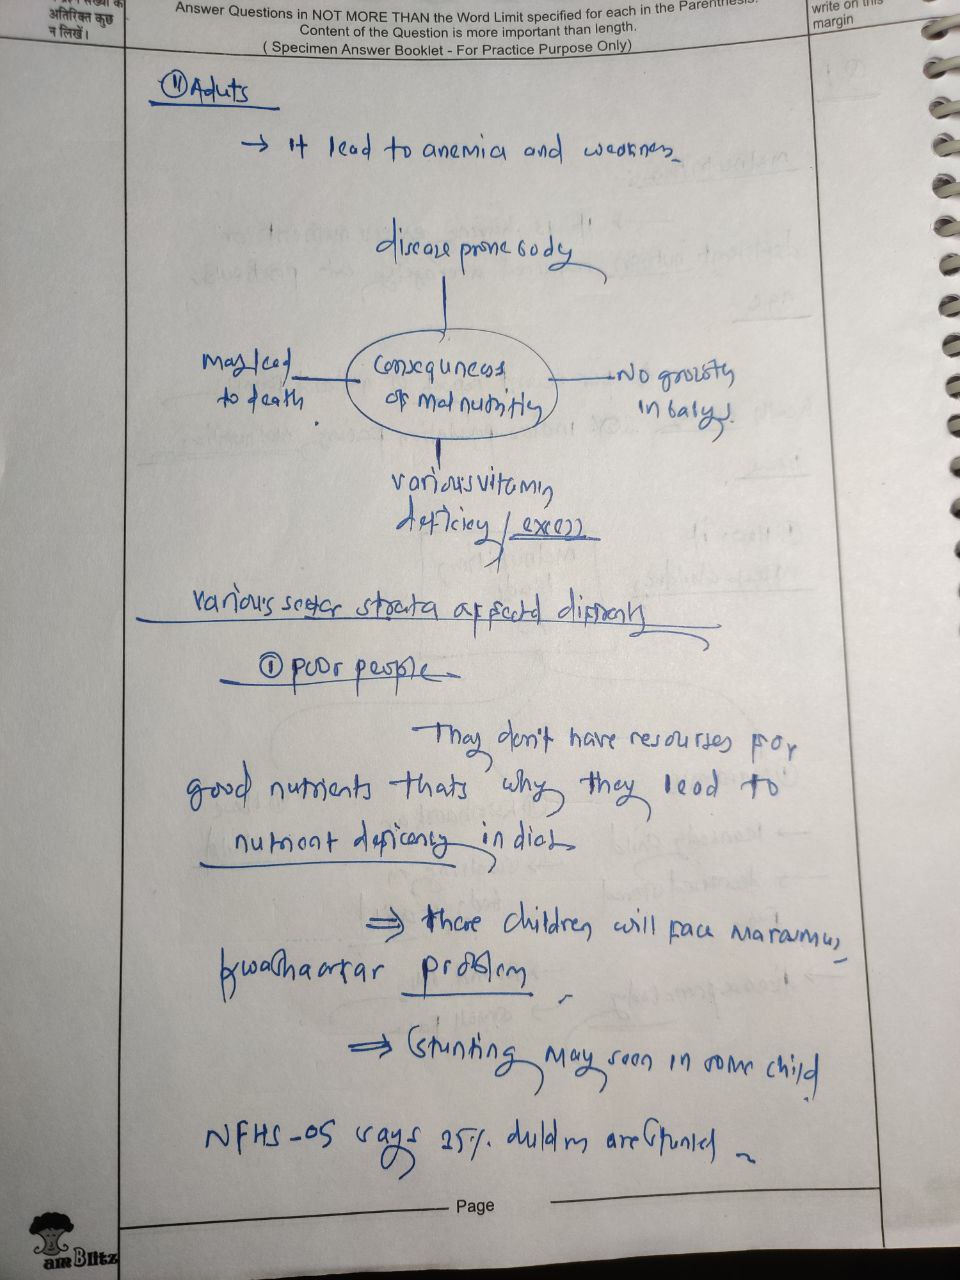 अतिरिक्त कुछ
न लिखें।
Answer Questions in NOT MORE THAN the Word Limit specified for each in the Parenthesis.
Content of the Question is more important than length.
( Specimen Answer Booklet - For Practice Purpose Only)
write on this
margin
ii Aduts
→ It lead to anemia and weakness
disease prone body
May lead
to death
Consequnces
of malnutrition
No growth
in babys.
various vitamin
deficiey / excess
various sector strata affected differently
① poor people
They don't have resourses for
good nutrients thats why they lead to
nutrient deficency in diet
⇒ there children will face Marasmus,
kwashaorkar problem
⇒ Stunting may seen in some child
NFHS-05 says 35% children are stunted
Page
am Blitz